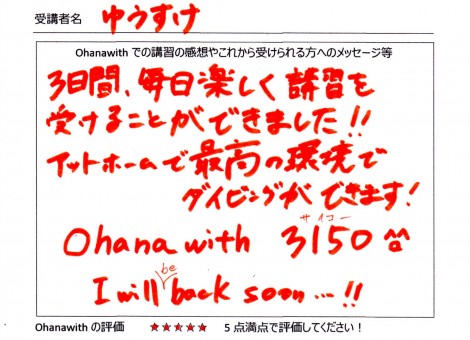 受講者名 ゆうすけ
Ohanawith での講習の感想やこれから受けられる方へのメッセージ等
3日間、毎日楽しく講習を
受けることができました!!
アットホームで最高の環境で
ダイビングができます!
サイコー
Ohana with 3150 ^^
be
I will back soon…!!
Ohanawith の評価 ★★★★★ 5 点満点で評価してください!